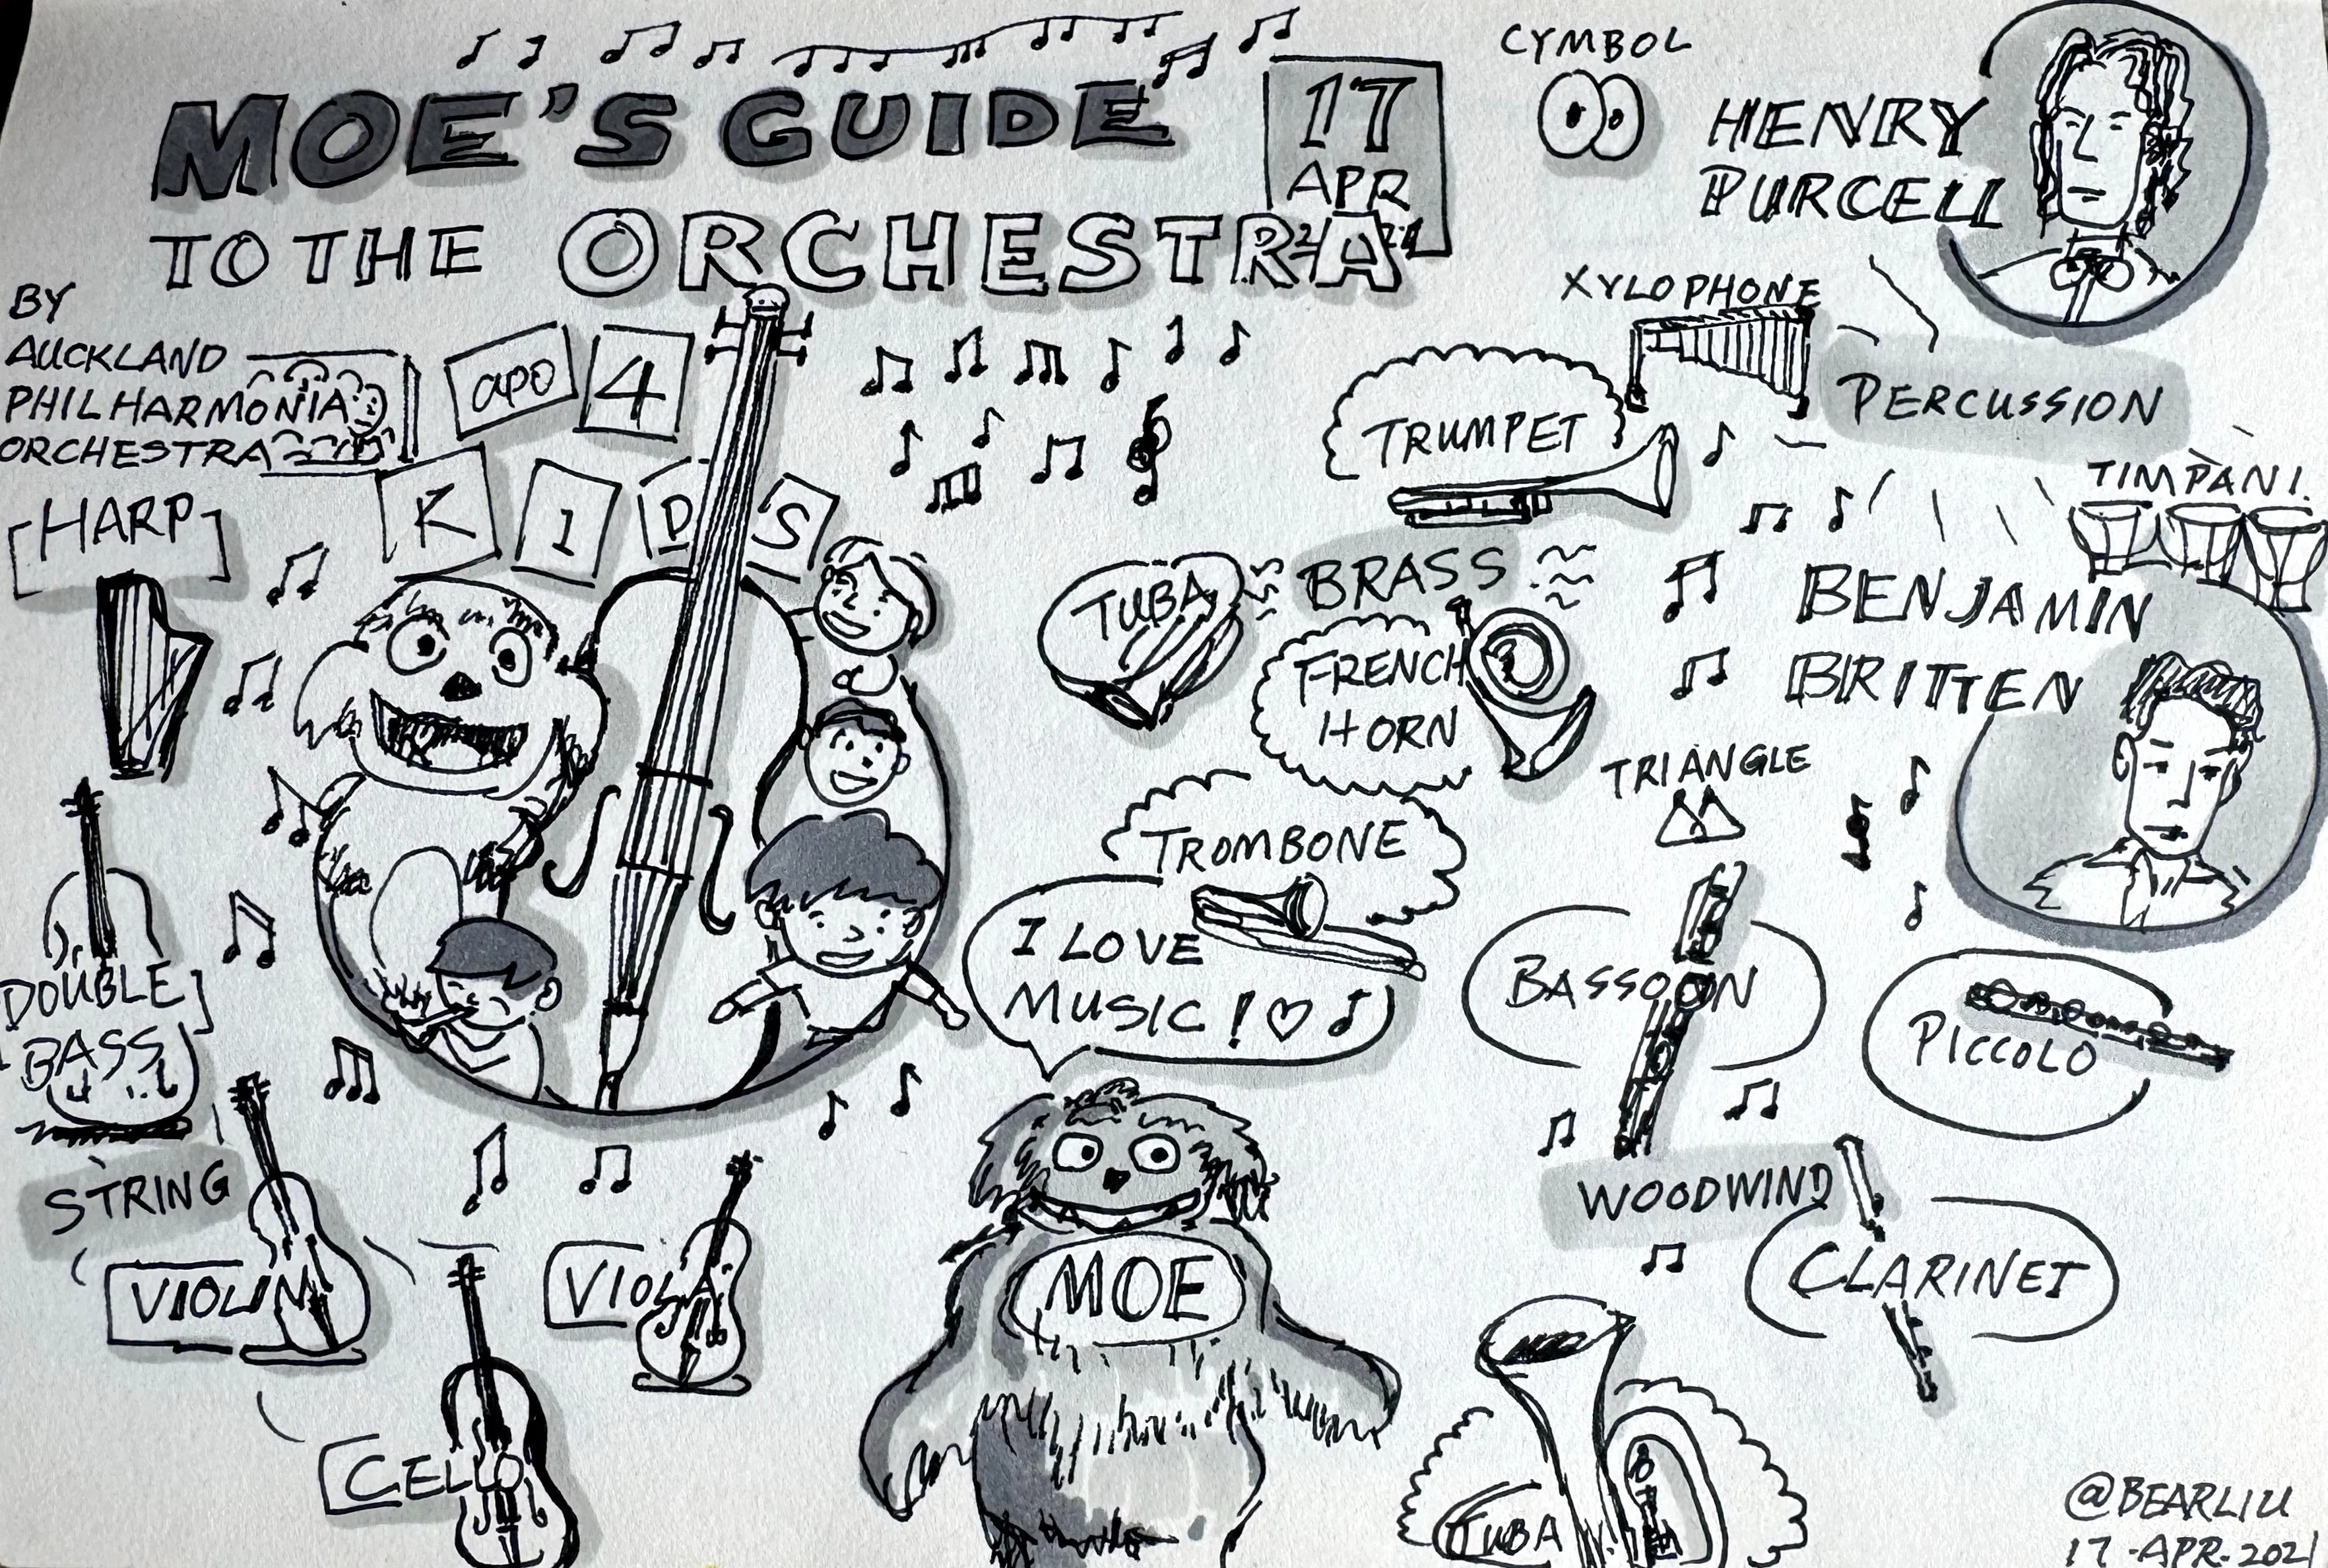 MOE'S GUIDE
TO THE ORCHESTRA
17
APR
BY
AUCKLAND
PHILHARMONIA
ORCHESTRA
apo 4
KIDS
[HARP]
DOUBLE
BASS
STRING
VIOLIN
VIOLA
CELLO
CYMBOL
HENRY
PURCELL
XYLOPHONE
PERCUSSION
TIMPANI.
TRUMPET
BRASS
TUBA
FRENCH
HORN
TROMBONE
BENJAMIN
BRITTEN
TRIANGLE
I LOVE
MUSIC!
MOE
BASSOON
PICCOLO
WOODWIND
CLARINET
TUBA
@BEARLIU
17-APR-2021